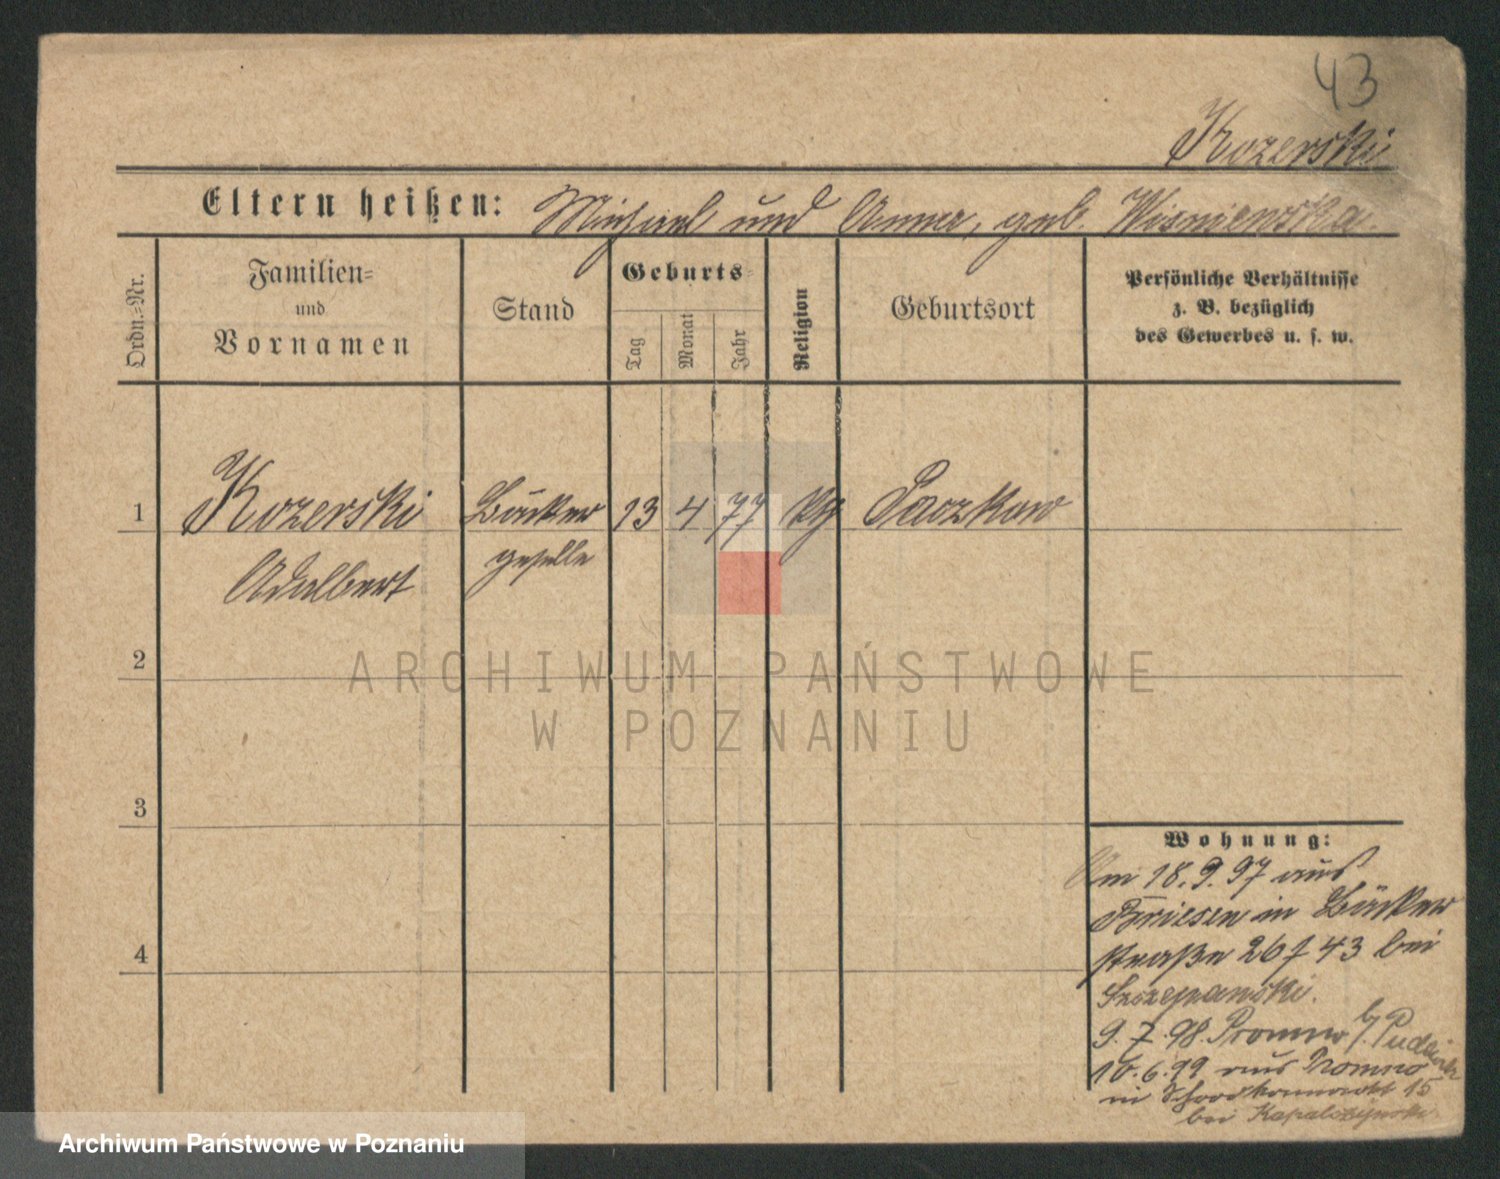 43
Kozerski
Eltern heißen: Michael und Anna, geb. Wisniewska.
Ordn.=Nr.
Familien=
und
Vornamen
Stand
Geburts=
Tag
Monat
Jahr
Religion
Geburtsort
Persönliche Verhältnisse
z. B. bezüglich
des Gewerbes u. s. w.
1
Kozerski
Adalbert
Bäcker
geselle
13
4
77
kth
Paczkow
2
3
4
Wohnung:
Am 18.9.97 aus
Briesen in Bäcker
straße 26 f 43 bei
Szczepanski.
9.7.98. Promno b/ Pudewitz
10.6.99 aus Promno
in 15
bei Kapalczynski
ARCHIWUM PAŃSTWOWE
W POZNANIU
Archiwum Państwowe w Poznaniu